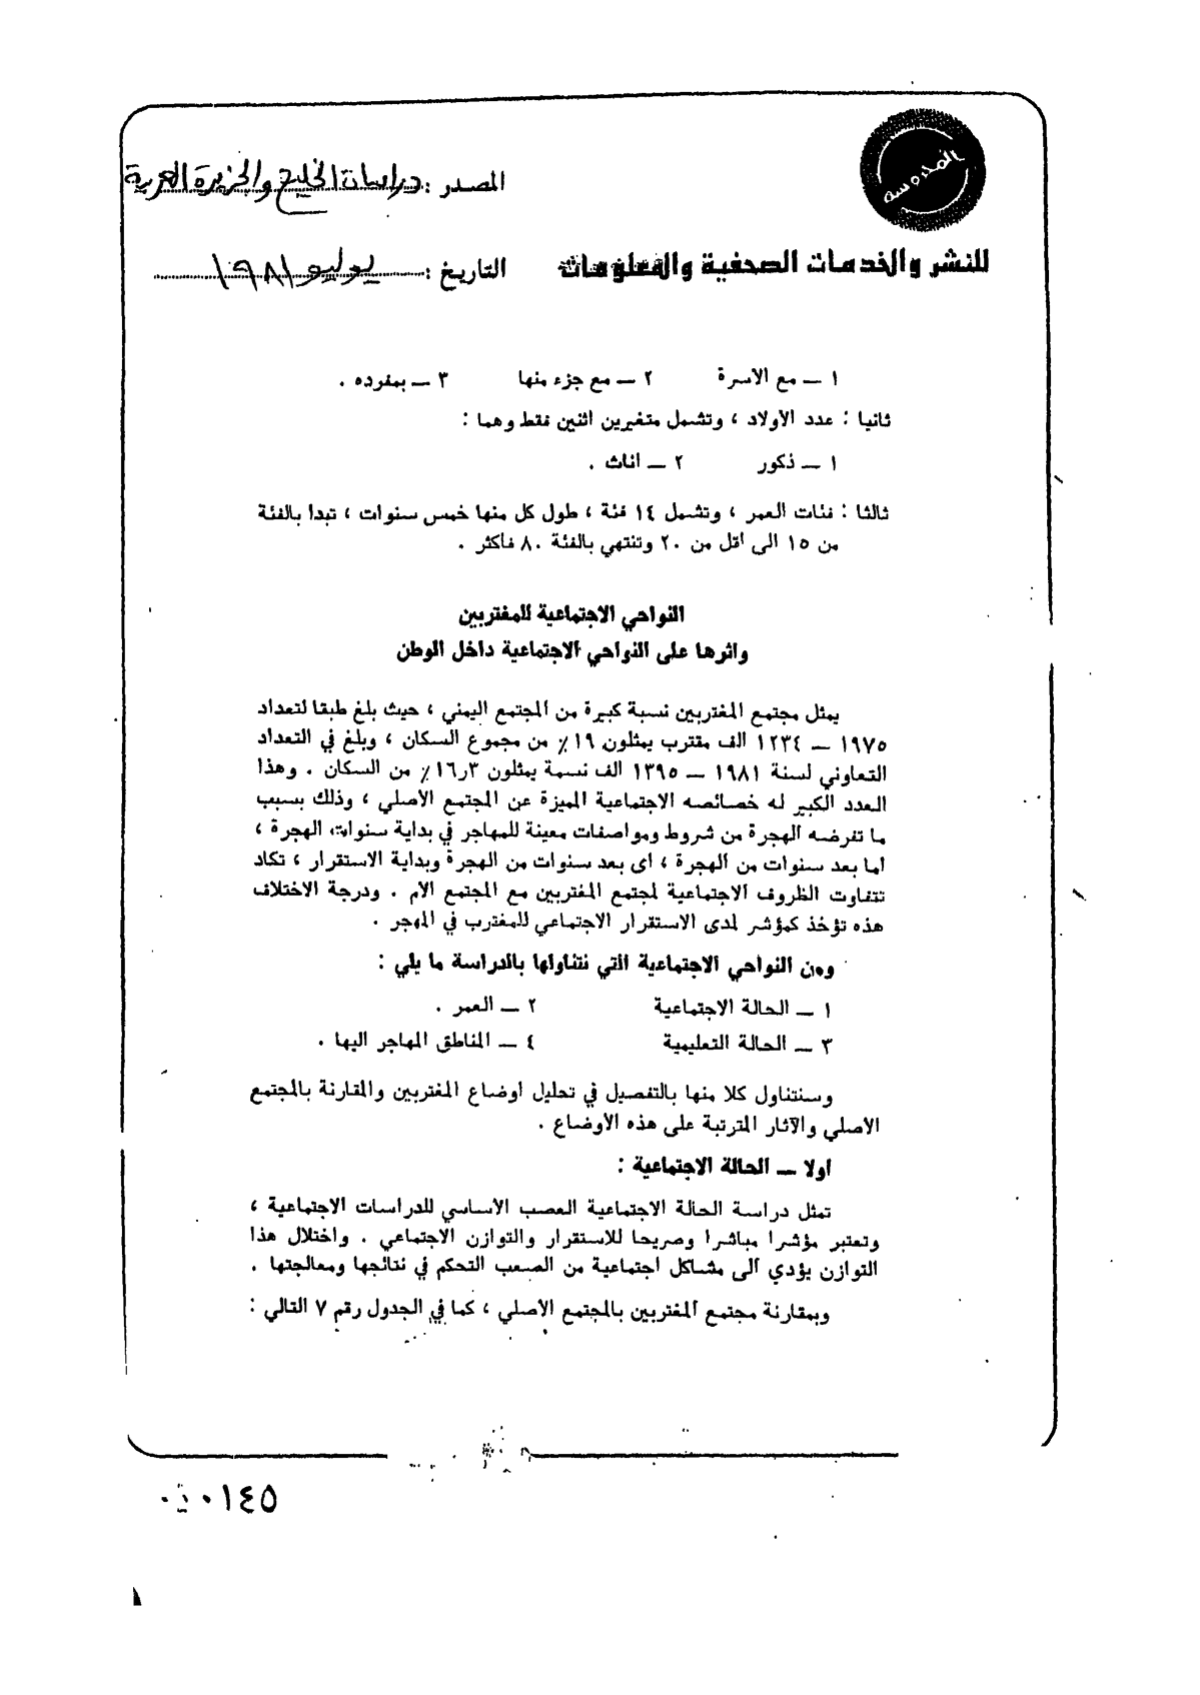 المحروسة
المصدر : دراسات الخليج والجزيرة العربية
للنشر والخدمات الصحفية والمعلومات
التاريخ : يوليو ١٩٨١
١ — مع الاسرة ٢ — مع جزء منها ٣ — بمفرده .
ثانيا : عدد الأولاد ، وتشمل متغيرين اثنين فقط وهما :
١ — ذكور ٢ — اناث .
ثالثا : فئات العمر ، وتشمل ١٤ فئة ، طول كل منها خمس سنوات ، تبدا بالفئة
من ١٥ الى اقل من ٢٠ وتنتهي بالفئة ٨٠ فأكثر .
النواحي الاجتماعية للمغتربين
واثرها على النواحي الاجتماعية داخل الوطن
يمثل مجتمع المغتربين نسبة كبيرة من المجتمع اليمني ، حيث بلغ طبقا لتعداد
١٩٧٥ — ١٢٣٤ الف مغترب يمثلون ١٩٪ من مجموع السكان ، وبلغ في التعداد
التعاوني لسنة ١٩٨١ — ١٣٩٥ الف نسمة يمثلون ١٦٫٣٪ من السكان . وهذا
العدد الكبير له خصائصه الاجتماعية المميزة عن المجتمع الأصلي ، وذلك بسبب
ما تفرضه الهجرة من شروط ومواصفات معينة للمهاجر في بداية سنوات الهجرة ،
اما بعد سنوات من الهجرة ، اى بعد سنوات من الهجرة وبداية الاستقرار ، تكاد
تتفاوت الظروف الاجتماعية لمجتمع المغتربين مع المجتمع الأم . ودرجة الاختلاف
هذه تؤخذ كمؤشر لمدى الاستقرار الاجتماعي للمغترب في المهجر .
ومن النواحي الاجتماعية التي نتناولها بالدراسة ما يلي :
١ — الحالة الاجتماعية ٢ — العمر .
٣ — الحالة التعليمية ٤ — المناطق المهاجر اليها .
وسنتناول كلا منها بالتفصيل في تحليل أوضاع المغتربين والمقارنة بالمجتمع
الاصلي والآثار المترتبة على هذه الأوضاع .
اولا — الحالة الاجتماعية :
تمثل دراسة الحالة الاجتماعية العصب الأساسي للدراسات الاجتماعية ،
وتعتبر مؤشرا مباشرا وصريحا للاستقرار والتوازن الاجتماعي . واختلال هذا
التوازن يؤدي الى مشاكل اجتماعية من الصعب التحكم في نتائجها ومعالجتها .
وبمقارنة مجتمع المغتربين بالمجتمع الأصلي ، كما في الجدول رقم ٧ التالي :